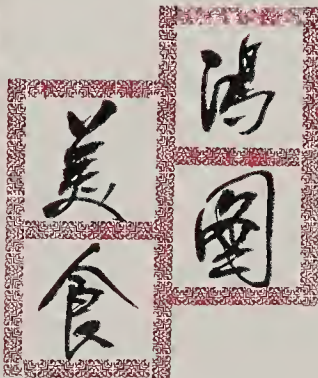 鴻圖
美食